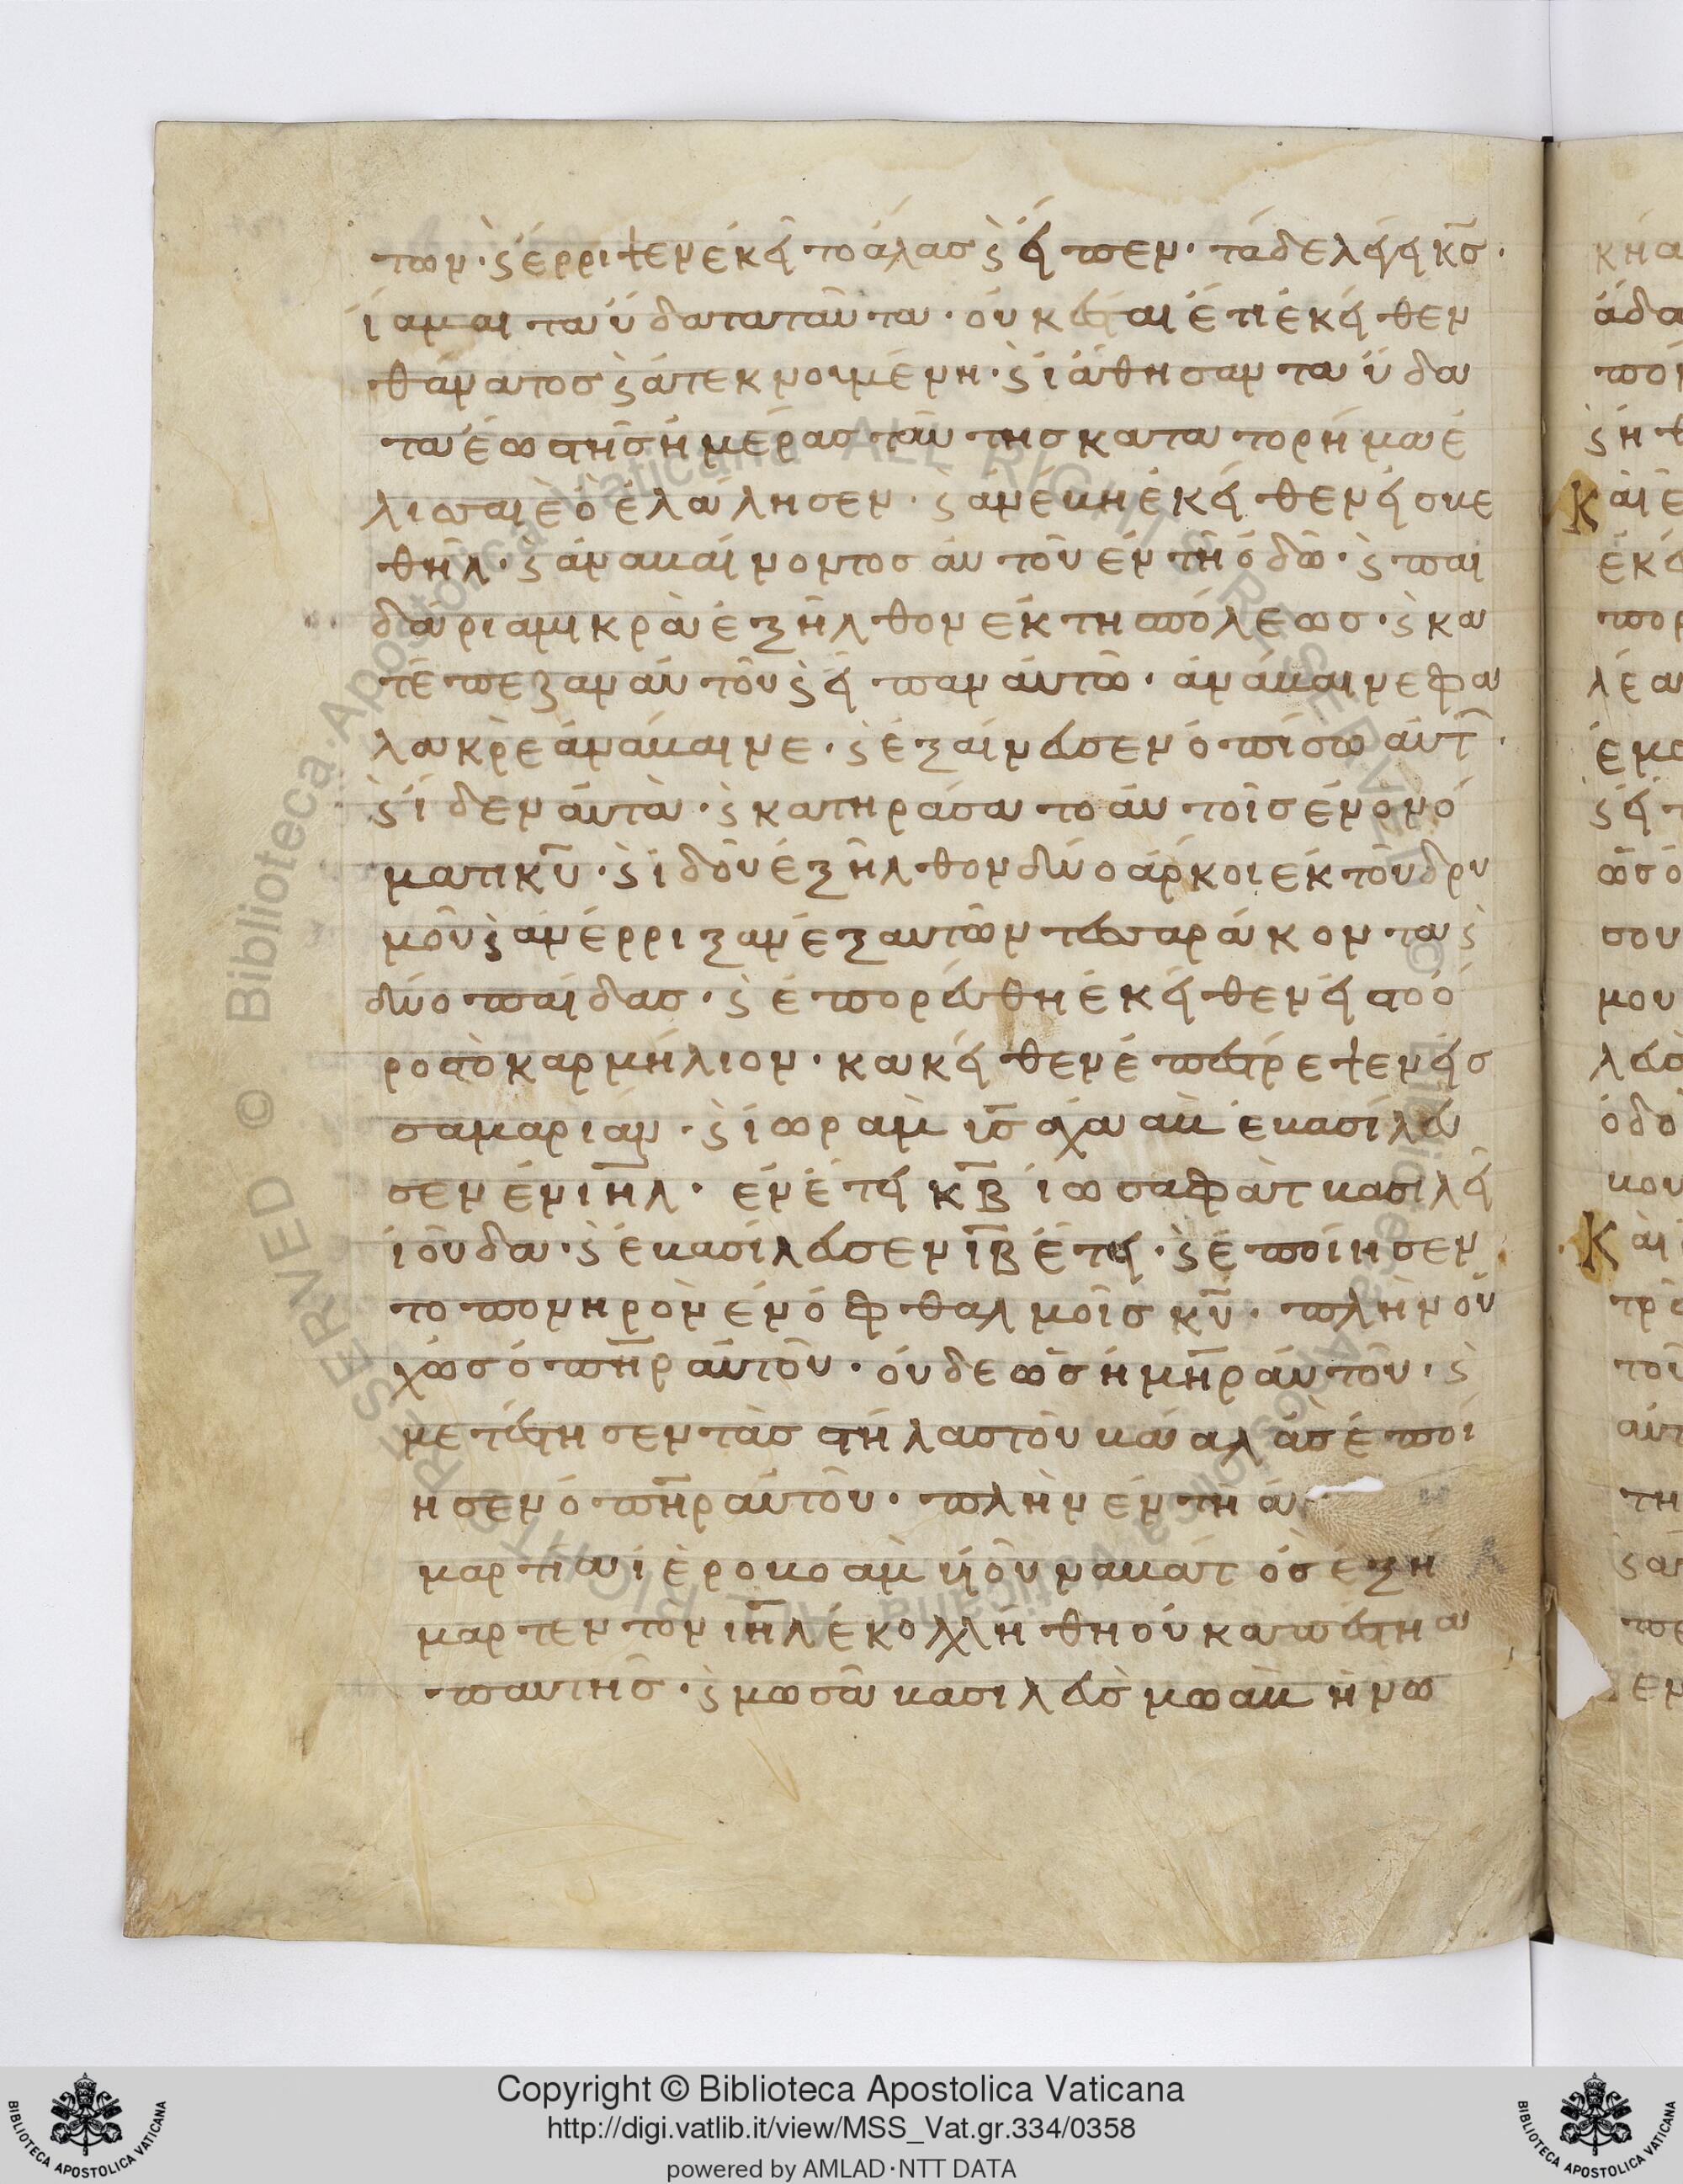 των· ϛ̀ ἔρριψεν ἐκεῖ τὸ ἅλας ϛ̀ εἶπεν· τάδε λέγει κ̅σ̅·
ἴαμαι τὰ ὕδατα ταῦτα· οὐκ ἔσται ἔτι ἐκεῖθεν
θάνατος ϛ̀ ἀτεκνουμένη· ϛ̀ ἰάθησαν τὰ ὕδα
τα ἕως τῆς ἡμέρας ταύτης κατὰ τὸ ῥῆμα ἐ
λισσαιὲ ὃ ἐλάλησεν· ϛ̀ ἀνέβη ἐκεῖθεν εἰς βε
θήλ· ϛ̀ ἀναβαίνοντος αὐτοῦ ἐν τῇ ὁδῷ· ϛ̀ παι
δάρια μικρὰ ἐξῆλθον ἐκ τῆ πόλεως· ϛ̀ κα
τέπεζαν αὐτοῦ ϛ̀ εἶπαν αὐτῷ· ἀνάβαινε φα
λακρὲ ἀνάβαινε· ϛ̀ ἐξαίνευσεν ὀπίσω αὐτ·
ϛ̀ ἴδεν αὐτὰ· ϛ̀ κατηράσατο αὐτοῖς ἐν ὀνό
ματι κ̅υ̅· ϛ̀ ἰδοῦ ἐξῆλθον δύο ἄρκοι ἐκ τοῦ δρυ
μοῦ ϛ̀ ἀνέρριξαν ἐξ αὐτῶν τεσσαράκοντα ϛ̀
δύο παίδας· ϛ̀ ἐπορεύθη ἐκεῖθεν εἰς τὸ ὄ
ρος τὸ καρμήλιον· κακεῖθεν ἐπέστρεψεν εἰς
σαμαριάν· ϛ̀ ἰωρὰμ υ̅σ̅ ἀχαὰβ ἐβασίλευ
σεν ἐν ι̅η̅λ̅· ἐν ἔτει κ̅β̅ ἰωσαφὰτ βασιλεῖ
ἰοῦδα· ϛ̀ ἐβασίλευσεν ι̅β̅ ἔτη· ϛ̀ ἐποίησεν
τὸ πονηρὸν ἐν ὀφθαλμοῖς κ̅υ̅· πλὴν οὐ
χ ὡς ὁ π̅η̅ρ̅ αὐτοῦ· οὐδε ὡς ἡ μ̅η̅ρ̅ αὐτοῦ· ϛ̀
μετέστησεν τὰς στήλας τοὺ βάαλ ἃς ἐποί
ησεν ὁ π̅η̅ρ̅ αὐτοῦ· πλὴν ἐν τῇ ἁ
μαρτία ἱεροβοὰμ υἱοῦ ναβάτ ὃς ἐξή
μαρτεν τὸν ι̅η̅λ̅ ἐκολλήθη οὐκ ἀπέστη ἀ
π αὐτῆς· ϛ̀ μωσᾶ βασιλεὺς μωὰβ ἦν ω
Copyright © Biblioteca Apostolica Vaticana
http://digi.vatlib.it/view/MSS_Vat.gr.334/0358
powered by AMLAD·NTT DATA